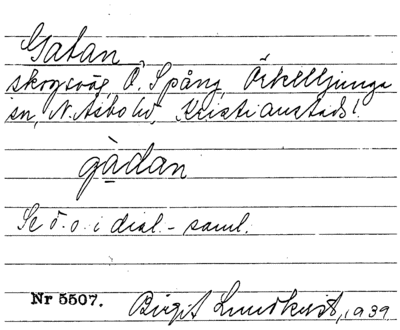 Gatan
skogsväg, Ö. Spång, Örkelljunga
sn, N. Åsbo hd, Kristianstads l.
gàdan
Se ö. o. i dial.-saml.
Nr 5507. Birgit Lundkvist, 1939